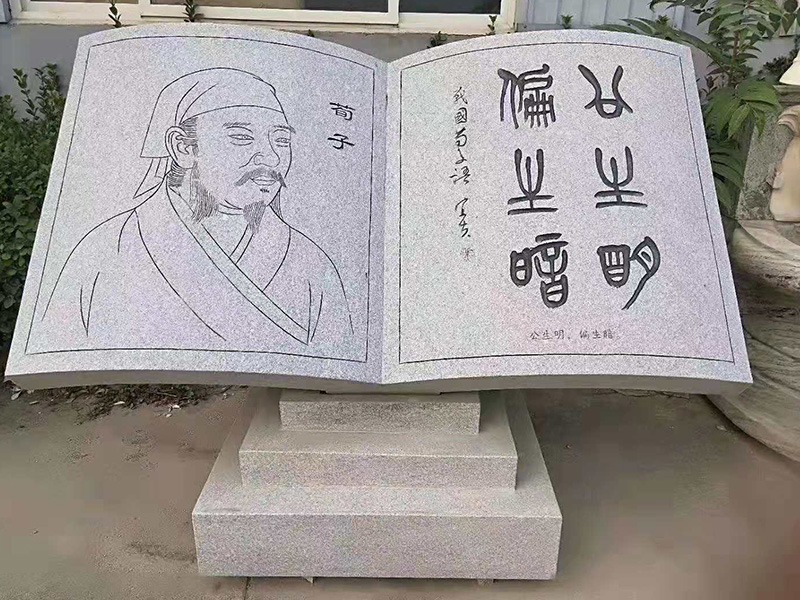 荀子
公生明
偏生暗
戰國荀子語
公生明，偏生暗